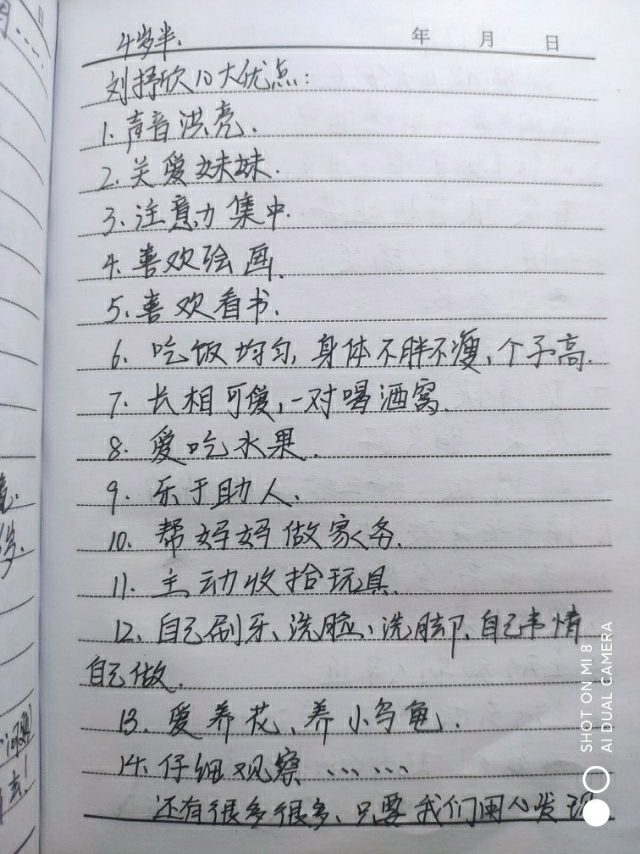 4岁半. 年 月 日
刘抒欣10大优点:
1. 声音洪亮.
2. 关爱妹妹.
3. 注意力集中.
4. 喜欢绘画.
5. 喜欢看书.
6. 吃饭均匀,身体不胖不瘦、个子高.
7. 长相可爱,一对喝酒窝.
8. 爱吃水果.
9. 乐于助人.
10. 帮妈妈做家务.
11. 主动收拾玩具.
12. 自己刷牙、洗脸、洗脚,自己事情
自己做.
13. 爱养花、养小乌龟.
14. 仔细观察……
还有很多很多、只要我们用心发现
SHOT ON MI 8
AI DUAL CAMERA